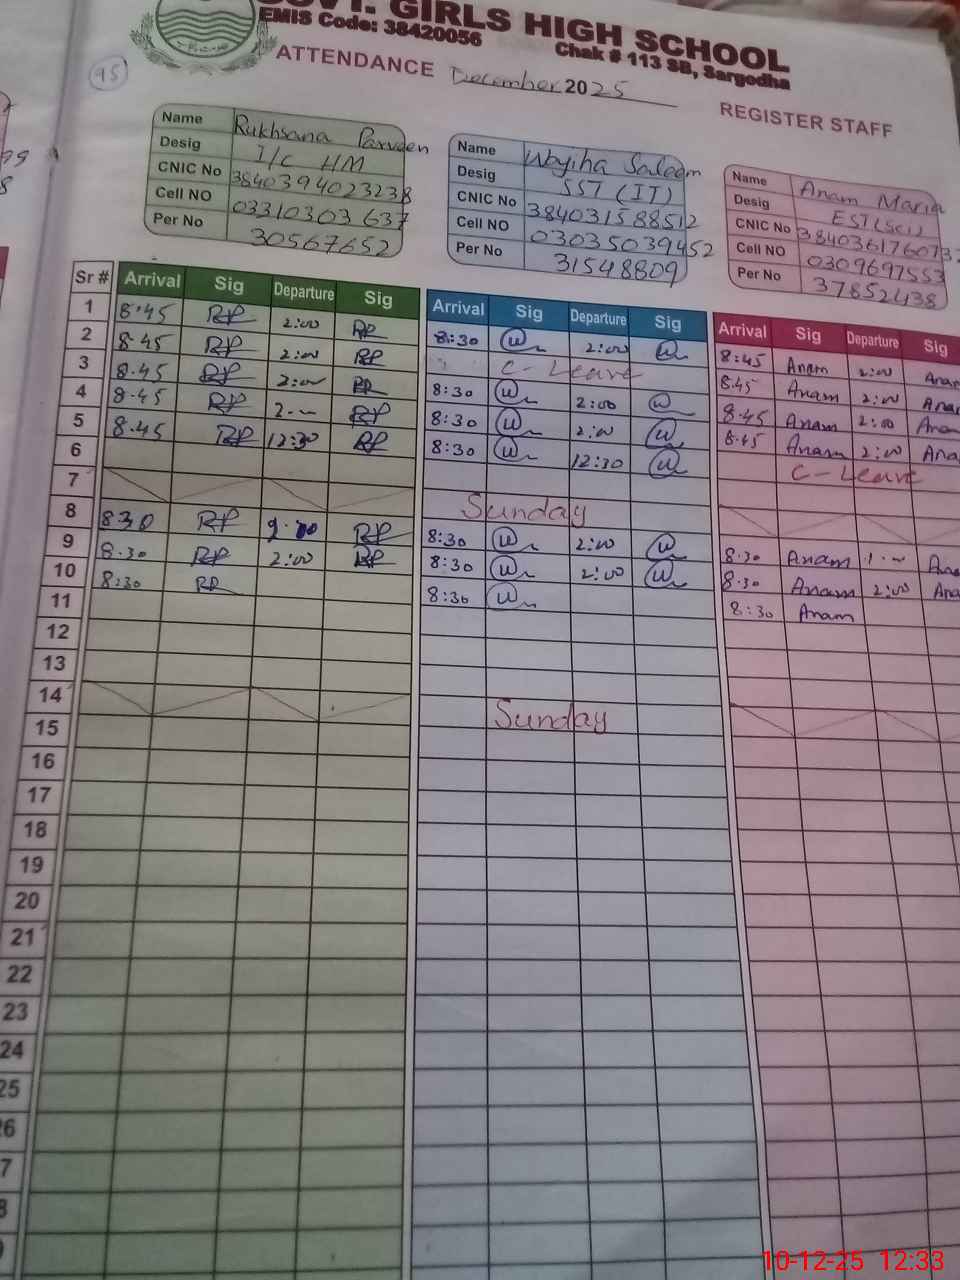 GOVT. GIRLS HIGH SCHOOL
EMIS Code: 38420056
Chak # 113 SB, Sargodha
95
ATTENDANCE December 2025 REGISTER STAFF
Name Rukhsana Parveen
Desig I/C HM
CNIC No 3840394023238
Cell NO 03310303637
Per No 30567652
Name Wajiha Saleem
Desig SST (IT)
CNIC No 384031588512
Cell NO 03035039452
Per No 31548809
Name Anam Maria
Desig EST(Sci)
CNIC No
Cell NO 0309697553
Per No 37852438
Sr # Arrival Sig Departure Sig Arrival Sig Departure Sig Arrival Sig Departure Sig
1 8:45 RP 2:00 RP 8:30 W 2:00 W 8:45 Anam 2:00 Anam
2 8.45 RP 2:00 RP C-Leave 8.45 Anam 2:00 Ana
3 8.45 RP 2:00 RP 8:30 W 2:00 W 8.45 Anam 2:00 Anam
4 8.45 RP 2-- RP 8:30 W 2:00 W 8.45 Anam 2:00 Ana
5 8.45 RP 12:30 RP 8:30 W 12:30 W C-Leave
6
7 Sunday
8 830 RP RP 8:30 W 2:00 W 8.30 Anam Ana
9 8.30 RP 2:00 RP 8:30 W 2:00 W 8:30 Anam 2:00 Ana
10 8:30 RP 8:30 W 8:30 Anam
11
12
13
14 Sunday
15
16
17
18
19
20
21
22
23
24
25
26
7
8
10-12-25 12:33